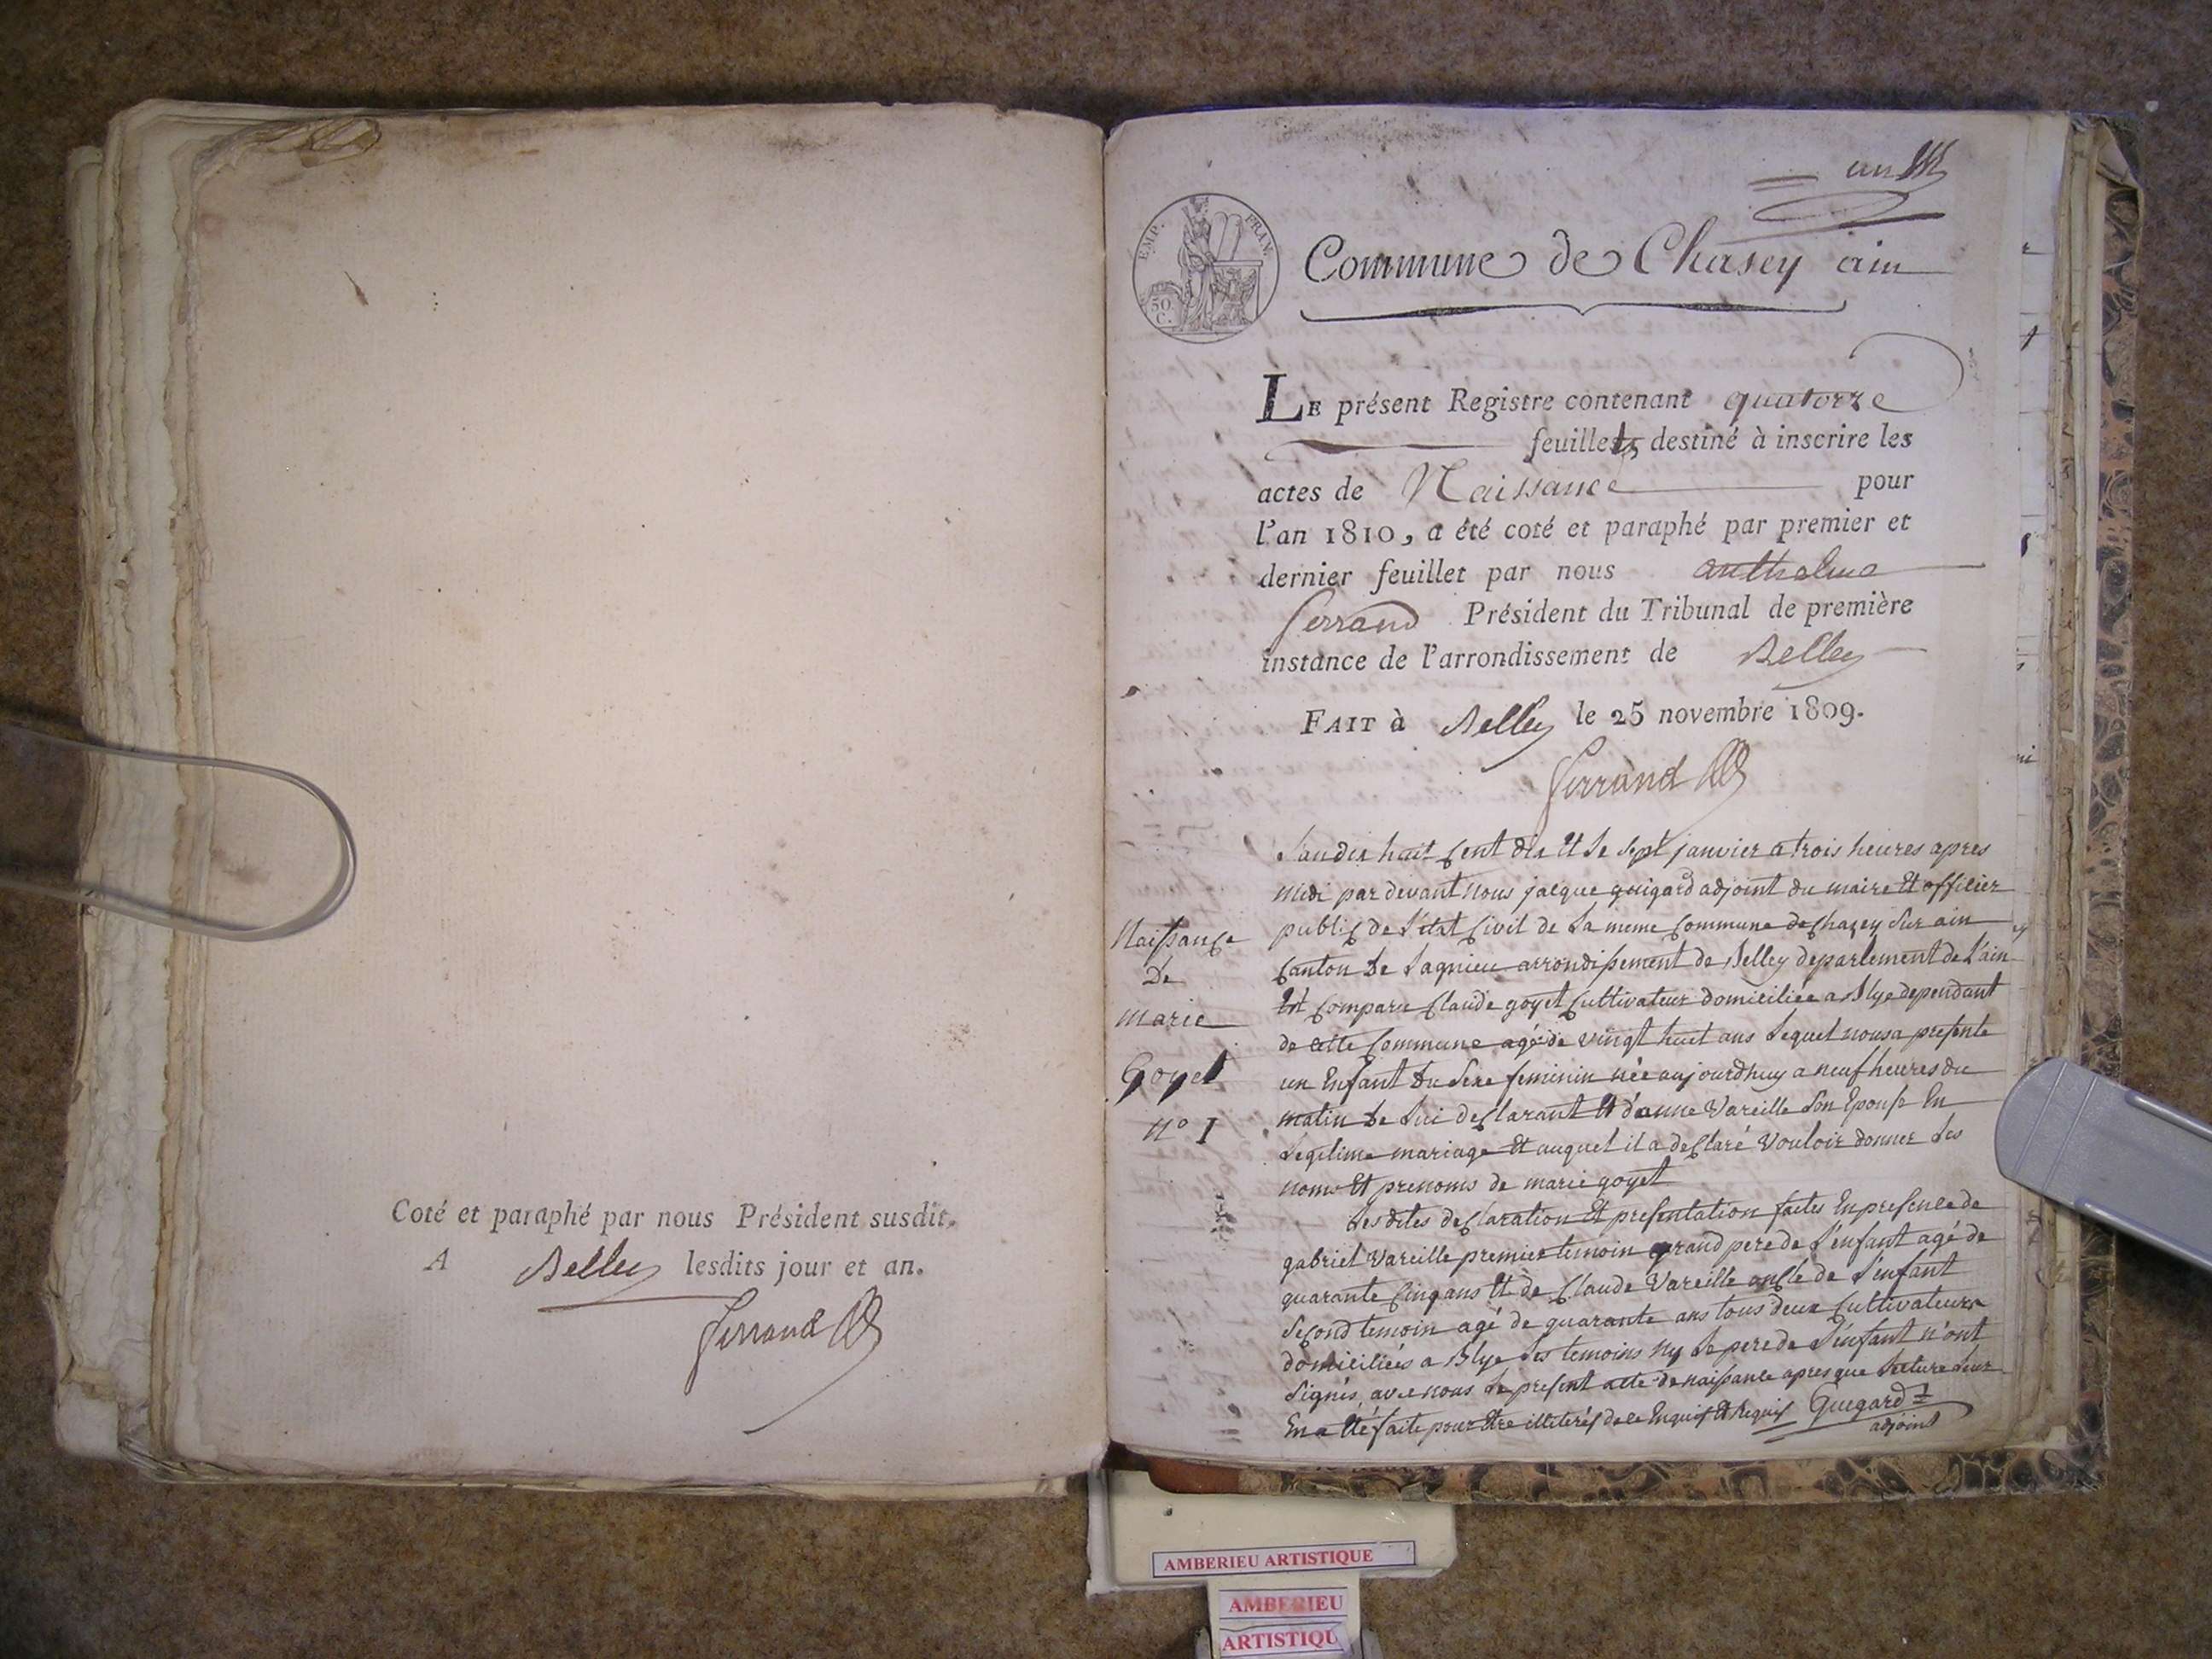 Coté et paraphé par nous Président susdit.
A Belley lesdits jour et an.
Ferrand
un
EMP. FRAN.
50 C.
Commune de Chasey ain
LE présent Registre contenant quatorze
feuillets, destiné à inscrire les
actes de Naissance pour
l'an 1810, a été coté et paraphé par premier et
dernier feuillet par nous anthelme
ferrand Président du Tribunal de première
instance de l'arrondissement de Belley
FAIT à Belley le 25 novembre 1809.
Ferrand
Naissance
De
marie
Goyet
n° 1
L'an dix huit cent dix Et le sept janvier a trois heures apres
midi par devant nous jacque guigard adjoint du maire Et officier
public de L'état Civil de La meme Commune de Chazey Sur ain
Canton De Lagnieu arrondissement de Belley departement de L'ain
Est Comparu Claude goyet Cultivateur domiciliée a Blye dependant
de cette Commune agé de vingt huit ans Lequel nous a presente
un Enfant Du Sexe feminin née aujourdhuy a neuf heures du
matin De Lui declarant Et d'anne Vareille Son Epouse En
Legitime mariage Et auquel il a declaré Vouloir donner Les
noms Et prenoms de marie goyet
Lesdites declaration Et presentation faites En presence de
gabriel Vareille premier temoin grand pere de L'enfant agé de
quarante Cinq ans Et de Claude Vareille oncle de L'enfant
Second temoin agé de quarante ans tous deux Cultivateurs
domiciliés a Blye Les temoins Ny Le pere de L'enfant n'ont
Signés avec nous Le present acte de naissance apres que Lecture Leur
En a Eté faite pour Etre illiterés de ce Enquis Et Requis Guigard
adjoint
AMBERIEU ARTISTIQUE
AMBERIEU
ARTISTIQU